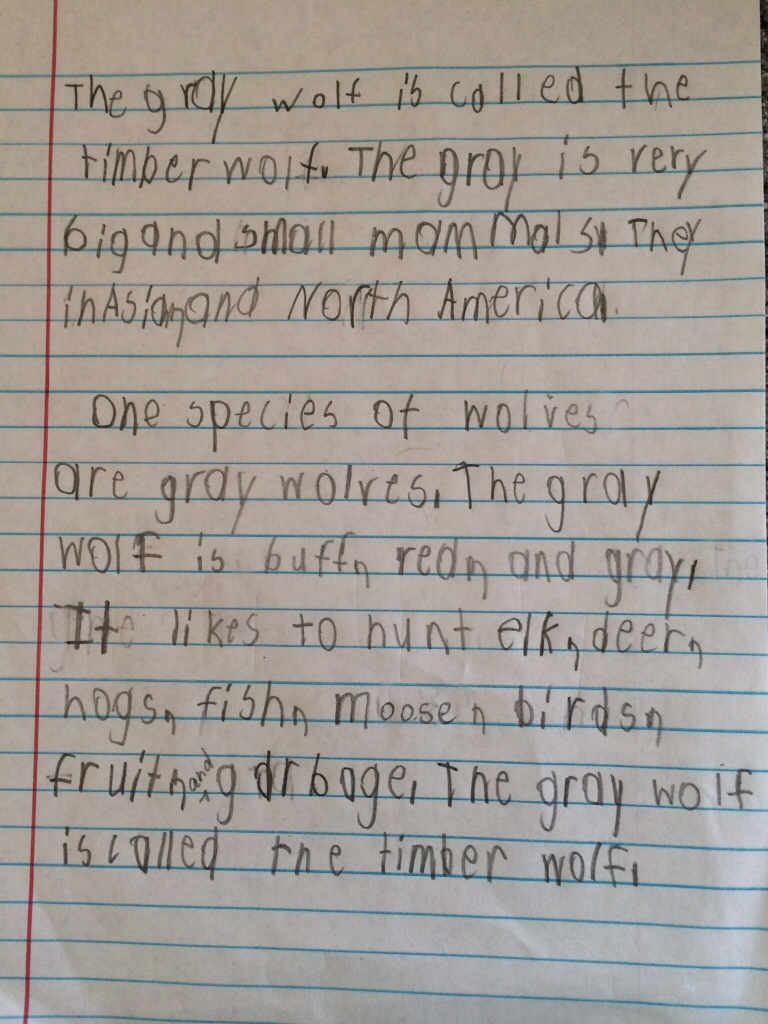 The gray wolf is called the
timber wolf. The gray is very
big and small mammals, They
in Asia, and North America.
One species of wolves
are gray wolves. The gray
wolf is buff, red, and gray.
It likes to hunt elk, deer,
hogs, fish, moose, birds,
fruit, and garbage. The gray wolf
is called the timber wolf.